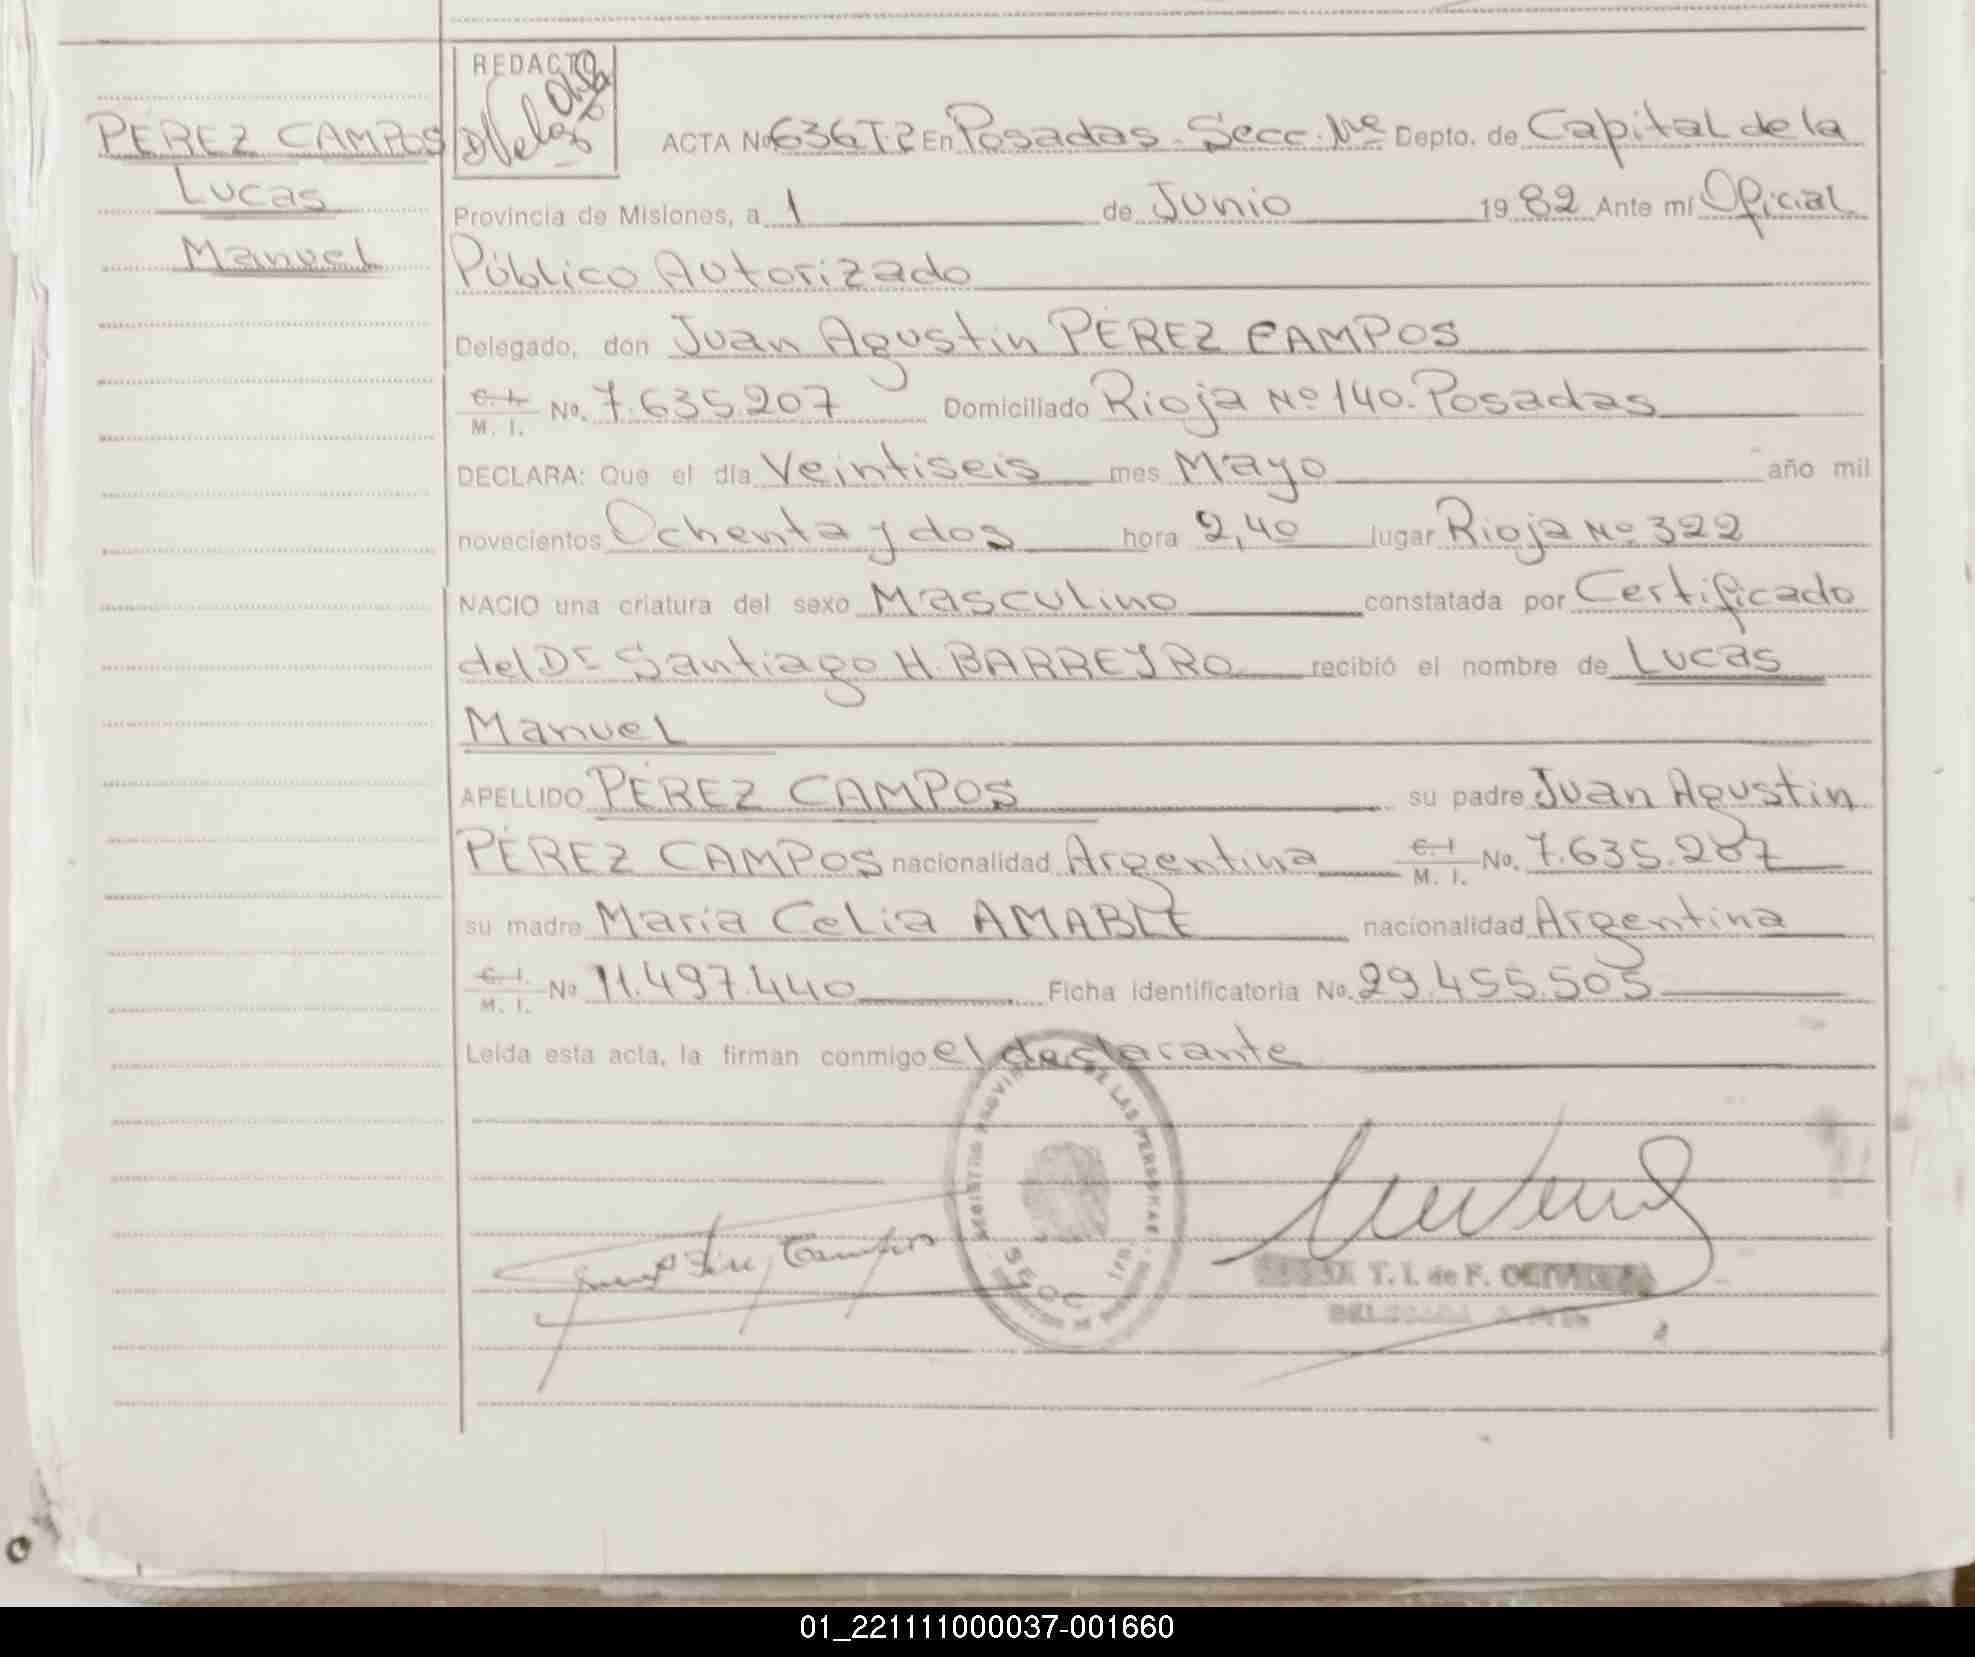 REDACTO
PÉREZ CAMPOS
Lucas
Manuel
ACTA No 636 T.2 En Posadas. Secc. Nº Depto. de Capital de la
Provincia de Misiones, a 1 de Junio 19 82 Ante mí Oficial
Público Autorizado
Delegado, don Juan Agustín PÉREZ CAMPOS
C. I. M. I. No. 7.635.207 Domiciliado Rioja Nº 140. Posadas
DECLARA: Que el día Veintiseis mes Mayo año mil
novecientos Ochenta y dos hora 2,40 lugar Rioja Nº 322
NACIO una criatura del sexo Masculino constatada por Certificado
del Dr Santiago H. BARREYRO recibió el nombre de Lucas
Manuel
APELLIDO PÉREZ CAMPOS su padre Juan Agustín
PÉREZ CAMPOS nacionalidad Argentina C. I. M. I. No. 7.635.207
su madre María Celia AMABLE nacionalidad Argentina
C. I. M. I. No 11.497.440 Ficha identificatoria No. 29.455.505
Leída esta acta, la firman conmigo el declarante
REGISTRO PROVINCIAL DE LAS PERSONAS
SECC. 1ra.
T. I. de F.
DELEGADA
01_221111000037-001660